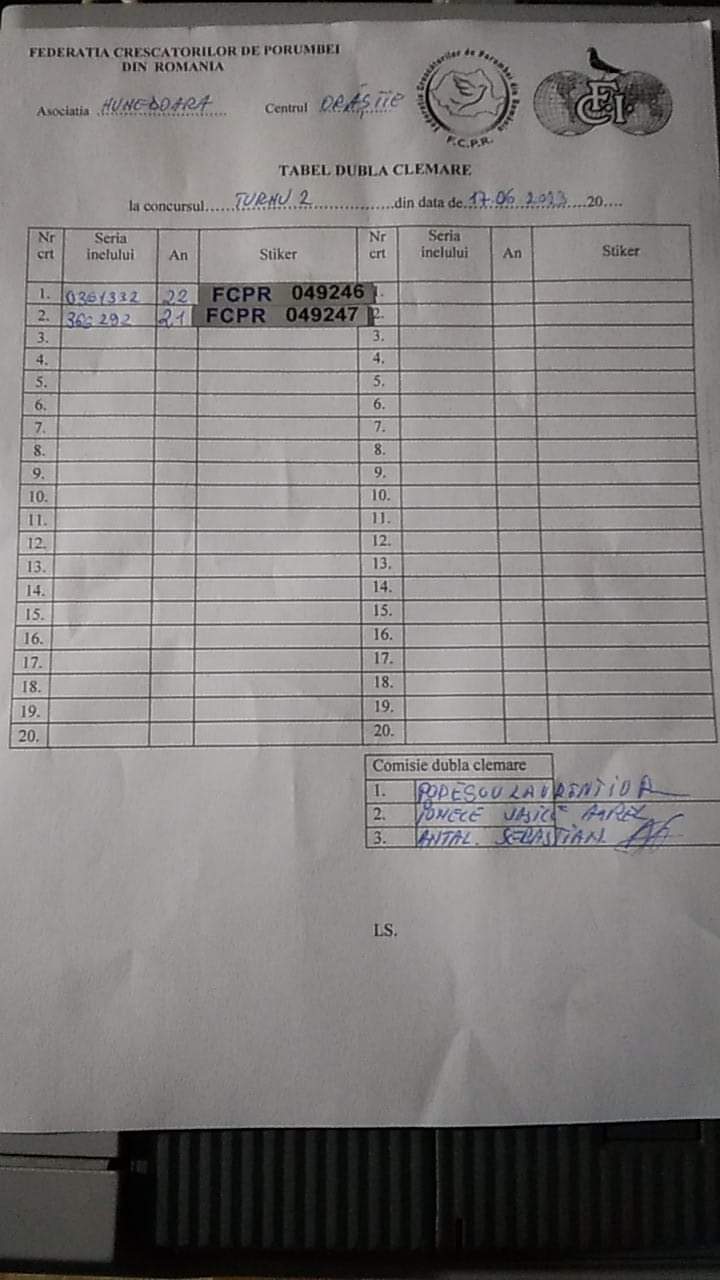 FEDERATIA CRESCATORILOR DE PORUMBEI
DIN ROMANIA
Asociatia HUNEDOARA Centrul ORĂȘTIE
Federatia Crescatorilor de Porumbei din Romania
F.C.P.R.
FCI
TABEL DUBLA CLEMARE
la concursul......TURNU 2......din data de 17.06 2023....20....
Nr crt Seria inelului An Stiker Nr crt Seria inelului An Stiker
1. 0361332 22 FCPR 049246 1.
2. 366292 21 FCPR 049247 2.
3. 3.
4. 4.
5. 5.
6. 6.
7. 7.
8. 8.
9. 9.
10. 10.
11. 11.
12. 12.
13. 13.
14. 14.
15. 15.
16. 16.
17. 17.
18. 18.
19. 19.
20. 20.
Comisie dubla clemare
1. POPESCU LAURENTIU
2. VASILE AUREL
3. ANTAL SEBASTIAN
LS.